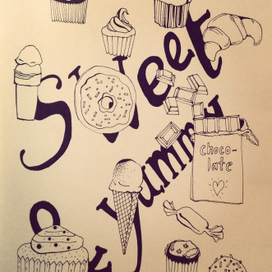 Sweet
& Yummy
choco-
late